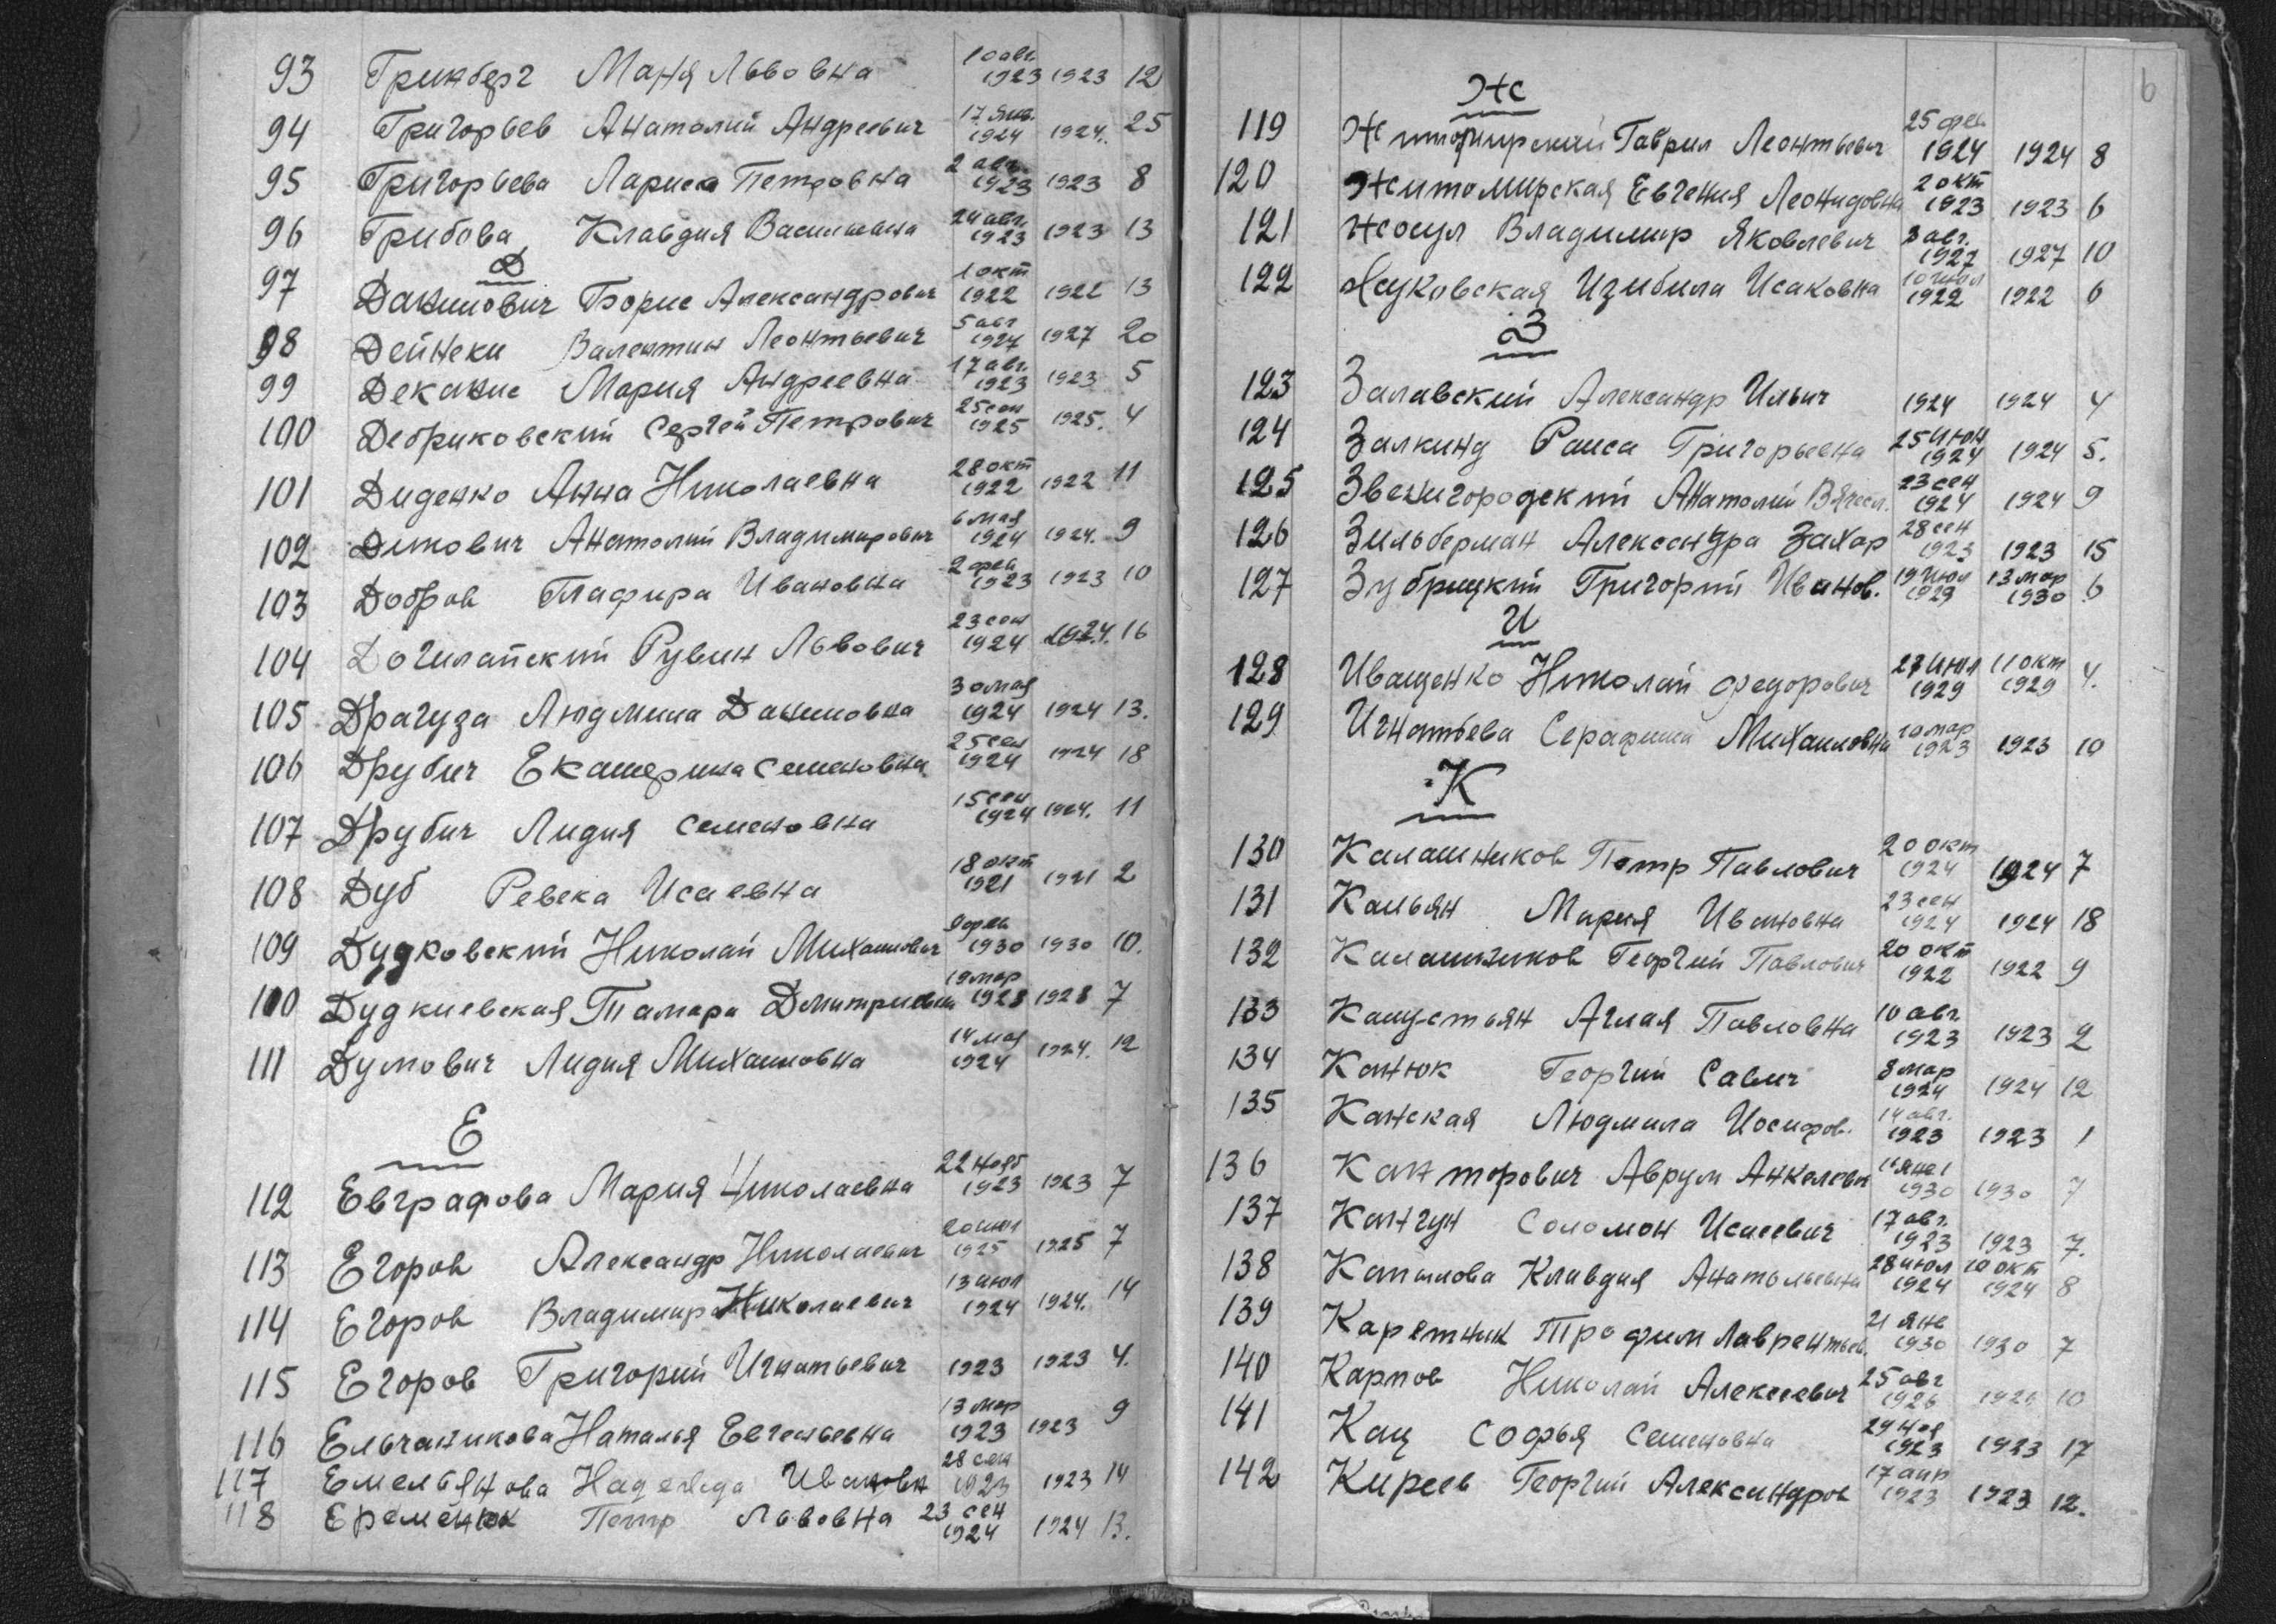 93 Гринберг Маня Львовна 10 авг. 1923 1923 12
94 Григорьев Анатолий Андреевич 17 янв. 1924 1924. 25
95 Григорьева Лариса Петровна 2 авг. 1923 1923 8
96 Грибова Клавдия Васильевна 24 авг. 1923 1923 13
Д
97 Данилович Борис Александрович 1 окт 1922 1922 13
98 Дейнеки Валентин Леонтьевич 5 авг 1927 1927 20
99 Деканис Мария Андреевна 17 авг. 1923 1923 5
100 Дебриковский Сергей Петрович 25 сен 1925 1925. 4
101 Диденко Анна Николаевна 28 окт 1922 1922 11
102 Димович Анатолий Владимирович 6 мая 1924 1924. 9
103 Добров Глафира Ивановна 2 фев 1923 1923 10
104 Догилайский Рувин Львович 23 сен 1924 1924. 16
105 Драгуза Людмила Даниловна 30 мая 1924 1924 13.
106 Друбич Екатерина Семеновна 25 сен 1924 1924 18
107 Друбич Лидия Семеновна 15 сен 1924 1924. 11
108 Дуб Ревека Исаевна 18 окт 1921 1921 2
109 Дудковский Николай Михайлович 9 фев 1930 1930 10.
100 Дудкиевская Тамара Дмитриевна 19 мар 1928 1928 7
111 Думович Лидия Михайловна 14 мая 1924 1924. 12
Е
112 Евграфова Мария Николаевна 22 нояб 1923 1923 7
113 Егоров Александр Николаевич 20 июл 1925 1925 7
114 Егоров Владимир Николаевич 13 июл 1924 1924. 14
115 Егоров Григорий Игнатьевич 1923 1923 4.
116 Ельчаникова Наталья Евгеньевна 13 мар 1923 1923 9
117 Емельянова Надежда Ивановн 28 сен 1923 1923 14
118 Еременюк Петр Львовна 23 сен 1924 1924 13.
6
Ж
119 Житомирский Гаврил Леонтьевич 25 фев 1924 1924 8
120 Житомирская Евгения Леонидовна 2 окт 1923 1923 6
121 Жосул Владимир Яковлевич 3 авг. 1927 1927 10
122 Жуковская Изибила Исаковна 10 июл 1922 1922 6
З
123 Залавский Александр Ильич 1924 1924 4
124 Залкинд Раиса Григорьевна 25 июн 1924 1924 5.
125 Звенигородский Анатолий Вячесл. 23 сен 1924 1924 9
126 Зильберман Александра Захар 28 сен 1923 1923 15
127 Зубрицкий Григорий Иванов. 19 июл 1929 13 мар 1930 6
И
128 Иващенко Николай Федорович 27 июл 1929 11 окт 1929 4.
129 Игнатьева Серафима Михайловна 10 мар 1923 1923 10
К
130 Калашников Петр Павлович 20 окт 1924 1924 7
131 Кальян Мария Ивановна 23 сен 1924 1924 18
132 Калашников Георгий Павлович 20 окт 1922 1922 9
133 Капустьян Аглая Павловна 10 авг. 1923 1923 2
134 Канюк Георгий Савич 8 мар 1924 1924 12
135 Канская Людмила Иосифов. 14 авг. 1923 1923 1
136 Канторович Аврум Анкелевич 1930 1930 7
137 Кангун Соломон Исаевич 17 авг. 1923 1923 7.
138 Капылова Клавдия Анатольевна 28 июл 1924 10 окт 1924 8
139 Каретник Трофим Лаврентьев. 21 янв 1930 1930 7
140 Карпов Николай Алексеевич 25 авг 1926 1926 10
141 Кац Софья Семеновна 29 ноя 1923 1923 17
142 Киреев Георгий Александров 17 апр 1923 1923 12.